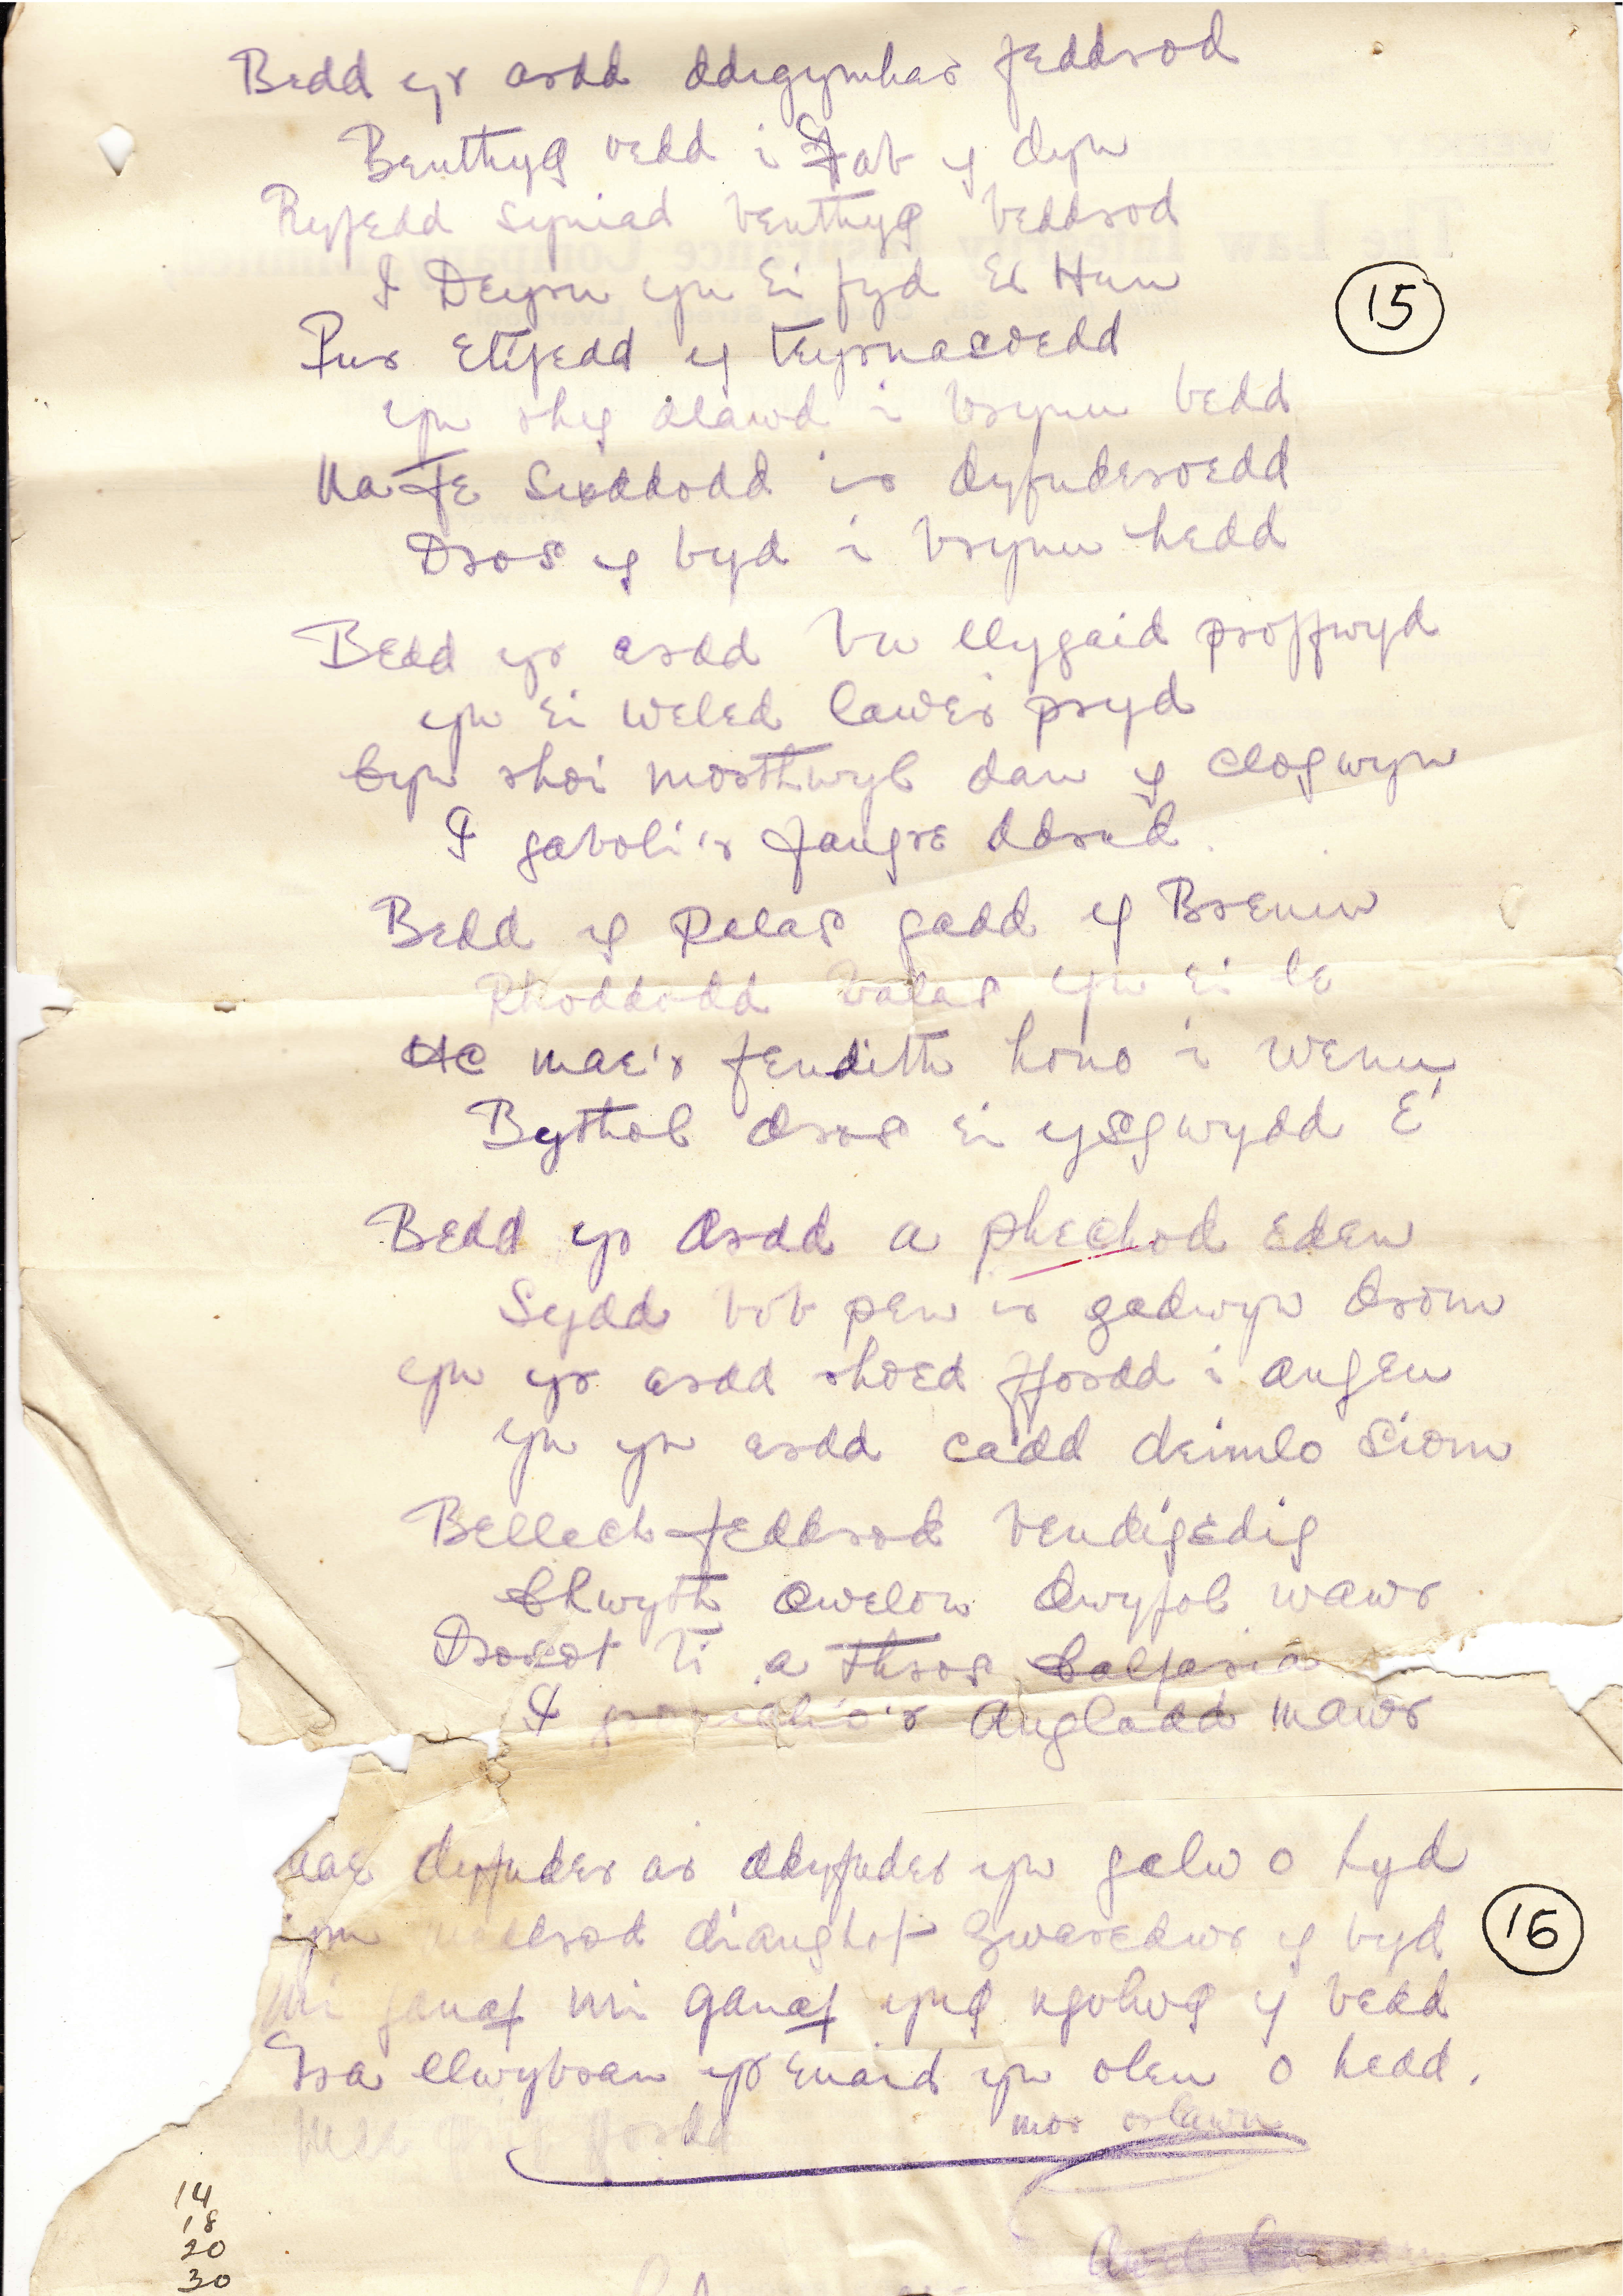 Bedd yr ardd ddigymhar feddrod
Benthyg vedd i Fab y dyn
Ryfedd syniad benthyg beddrod
I Deyrn yn Ei fyd Ei Hun
Pur Etifedd y teyrnasoedd
yn rhy dlawd i brynu bedd
Na Fe Suddodd ir dyfnderoedd
Dros y byd i brynu hedd
15
Bedd yr ardd bu llygaid proffwyd
yn Ei weled lawer pryd
Cyn rhoi morthwyl dan y clogwyn
I gaboli'r fangre ddrud.
Bedd y Palas gadd y Brenin
Rhoddodd balas yn Ei le
Ac mae'r fendith hono i wenu
Bythol dros Ei ysgwydd E'
Bedd yr ardd a phechod Eden
Sydd bob pen ir gadwyn drom
yn yr ardd rhoed ffordd i angeu
yn yr ardd cadd deimlo siom
Bellach feddrod bendigedig
Chwyth awelon dwyfol wawr
Drosot ti a thros Calfaria
I angladd mawr
Mae dyfnder ar ddyfnder yn galw o hyd
ym dianghof Gwaredwr y byd
16
Mi ganaf mi ganaf yng ngolwg y bedd
Tra llwybrau yr Enaid yn oleu o hedd.
mor orlawn
14
18
20
30